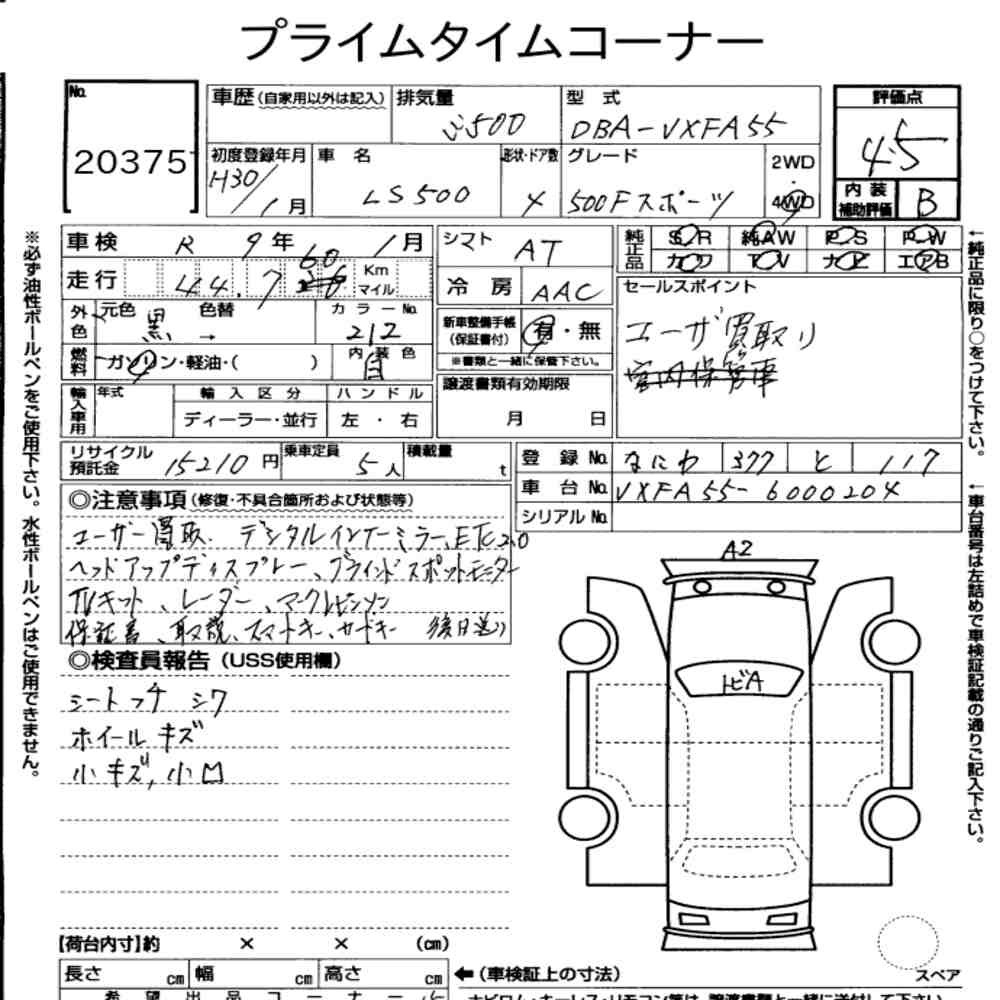 プライムタイムコーナー
No. 20375
車歴(自家用以外は記入)
排気量 3500
型 式 DBA-VXFA55
評価点 4.5
初度登録年月 H30/1月
車 名 LS500
形状・ドア数 4
グレード 500Fスポーツ
2WD・4WD
内装補助評価 B
車検 R 9年 1月
シフト AT
純正品 S◯R 純AW P◯S P◯W
カ◯ワ T◯V ナビ エアB
走行 44.7 60 Km マイル
冷 房 AAC
セールスポイント
ユーザー買取り
室内保管車
外色 元色 黒 色替 → カラーNo. 212
新車整備手帳(保証書付) 有・無
※書類と一緒に保管下さい。
燃料 ガソリン・軽油・( )
内装色 白
輸入車用 年式 輸入区分 ハンドル
ディーラー・並行 左・右
譲渡書類有効期限
月 日
リサイクル預託金 15210円
乗車定員 5人
積載量 t
登録No. なにわ 377 と 117
車台No. VXFA55-6000204
シリアルNo.
◎注意事項(修復・不具合箇所および状態等)
ユーザー買取. デジタルインナーミラー、ETC2.0
ヘッドアップディスプレー、ブラインドスポットモニター
TVキット、レーダー、マークレビンソン
保証書、取説、スマートキー、カードキー 後日送り
◎検査員報告(USS使用欄)
シート フチ シワ
ホイール キズ
小キズ,小凹
A2
トビA
【荷台内寸】約 × × (cm)
長さ cm 幅 cm 高さ cm
←(車検証上の寸法)
スペア
希望出品コーナー
ナビロム・キーレス・リモコン等は、譲渡書類と一緒に送付して下さい
※必ず油性ボールペンをご使用下さい。水性ボールペンはご使用できません。
←純正品に限り○をつけて下さい。
←車台番号は左詰めで車検証記載の通りご記入下さい。